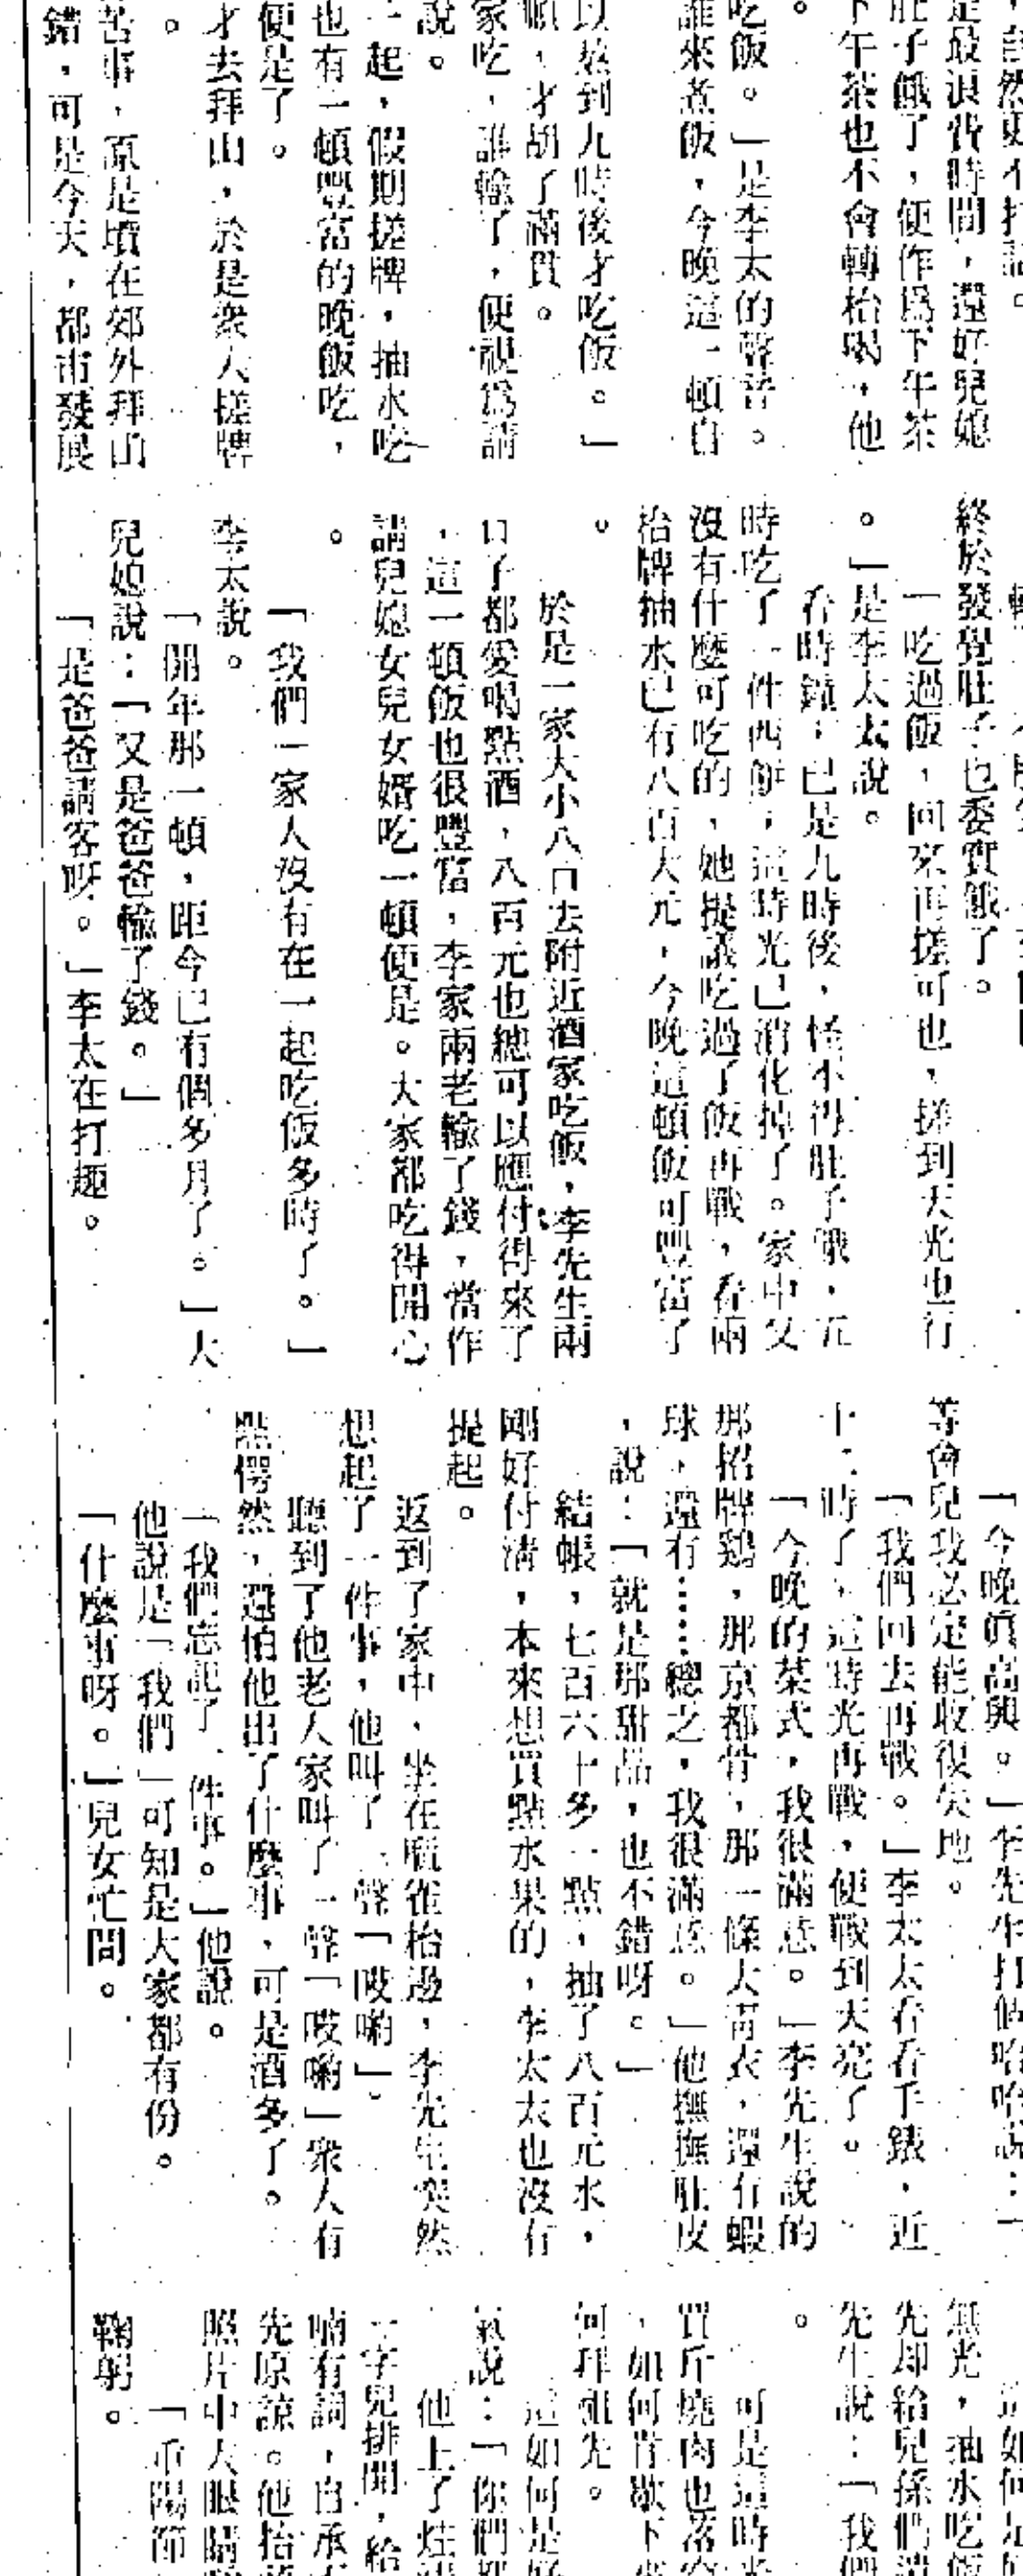 是最浪費時間，還好兒媳
肚子餓了，便作爲下午茶
下午茶也不會轉枱喝，他
。
吃飯。」是李太的聲音。
誰來煮飯，今晚這一頓自
以熬到九時後才吃飯。」
頓，才胡了滿貫。
家吃，誰輸了，便視爲請
說。
一起，假期搓牌，抽水吃
也有一頓豐富的晚飯吃，
便是了。
才去拜山，於是衆人搓牌
。
苦事，原是墳在郊外拜山
錯，可是今天，都市發展
終於發覺肚子也委實餓了。
「吃過飯，回來再搓可也，搓到天光也行
。」是李太太說。
看時鐘，已是九時後，怪不得肚子餓，五
時吃了一件西餅，這時光已消化掉了。家中又
沒有什麼可吃的，她提議吃過了飯再戰，看兩
枱牌抽水已有八百大元，今晚這頓飯可豐富了
。
於是一家大小八口去附近酒家吃飯，李先生兩
口子都愛喝點酒，八百元也總可以應付得來了
，這一頓飯也很豐富，李家兩老輸了錢，當作
請兒媳女兒女婿吃一頓便是。大家都吃得開心
。
「我們一家人沒有在一起吃飯多時了。」
李太說。
「開年那一頓，距今已有個多月了。」大
兒媳說：「又是爸爸輸了錢。」
「是爸爸請客呀。」李太在打趣。
「今晚眞高興。」李先生打個哈哈說：「
等會兒我必定能收復失地。
「我們回去再戰。」李太太看看手錶，近
十二時了，這時光再戰，便戰到天亮了。
「今晚的菜式，我很滿意。」李先生說的
那招牌鷄，那京都骨，那一條大靑衣，還有蝦
球，還有……總之，我很滿意。」他撫撫肚皮
，說：「就是那甜品，也不錯呀。」
結帳，七百六十多一點，抽了八百元水，
剛好付淸，本來想買點水果的，李太太也沒有
提起。
返到了家中，坐在麻雀枱邊，李先生突然
想起了一件事，他叫了一聲「哎喲」。
聽到了他老人家叫了一聲「哎喲」衆人有
點愕然，還怕他出了什麼事，可是酒多了。
「我們忘記了一件事。」他說。
他說是「我們」可知是大家都有份。
「什麼事呀。」兒女忙問。
無光，抽水吃飯
先却給兒孫們
先生說：「我們
。
可是這時
買斤燒肉也落
，如何
何拜祖先。
這如何是好
氣說：「你們
他上了炷
一字兒排開，給
喃有詞，自承
先原諒。他抬
照片中人眼睛
「重陽節
鞠躬。